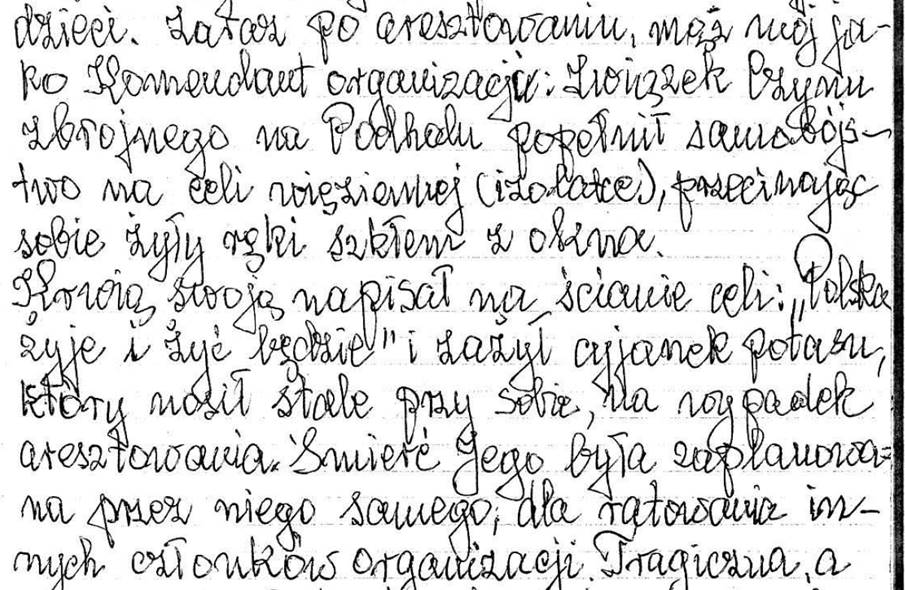 dzieci. Zaraz po aresztowaniu, mąż mój ja-
ko Komendant organizacji: Związek Czynu
Zbrojnego na Podhalu popełnił samobójs-
two na celi więziennej (izolatce), przecinając
sobie żyły ręki szkłem z okna.
Krwią swoją napisał na ścianie celi: „Polska
żyje i żyć będzie" i zażył cyjanek potasu,
który nosił stale przy sobie, na wypadek
aresztowania. Śmierć Jego była zaplanowa-
na przez niego samego, dla ratowania in-
nych członków organizacji. Tragiczna, a